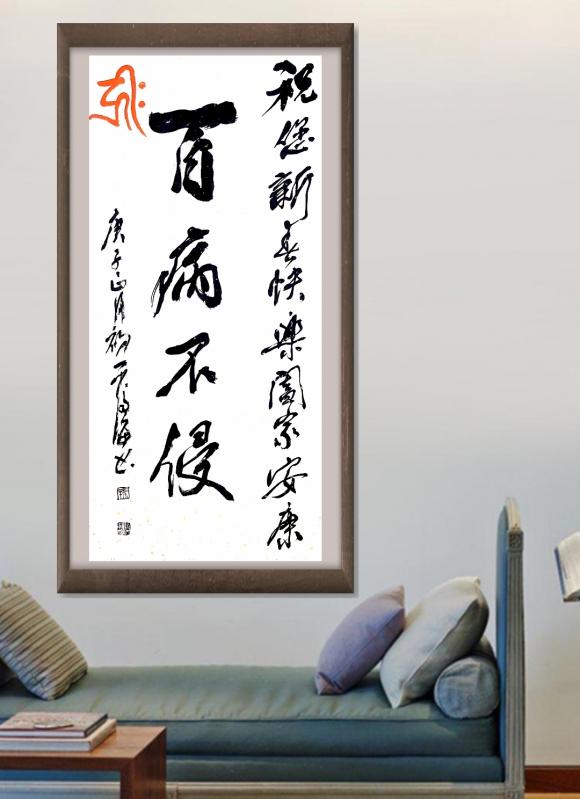 祝您新春快樂闔家安康
百病不侵
庚子正月初一